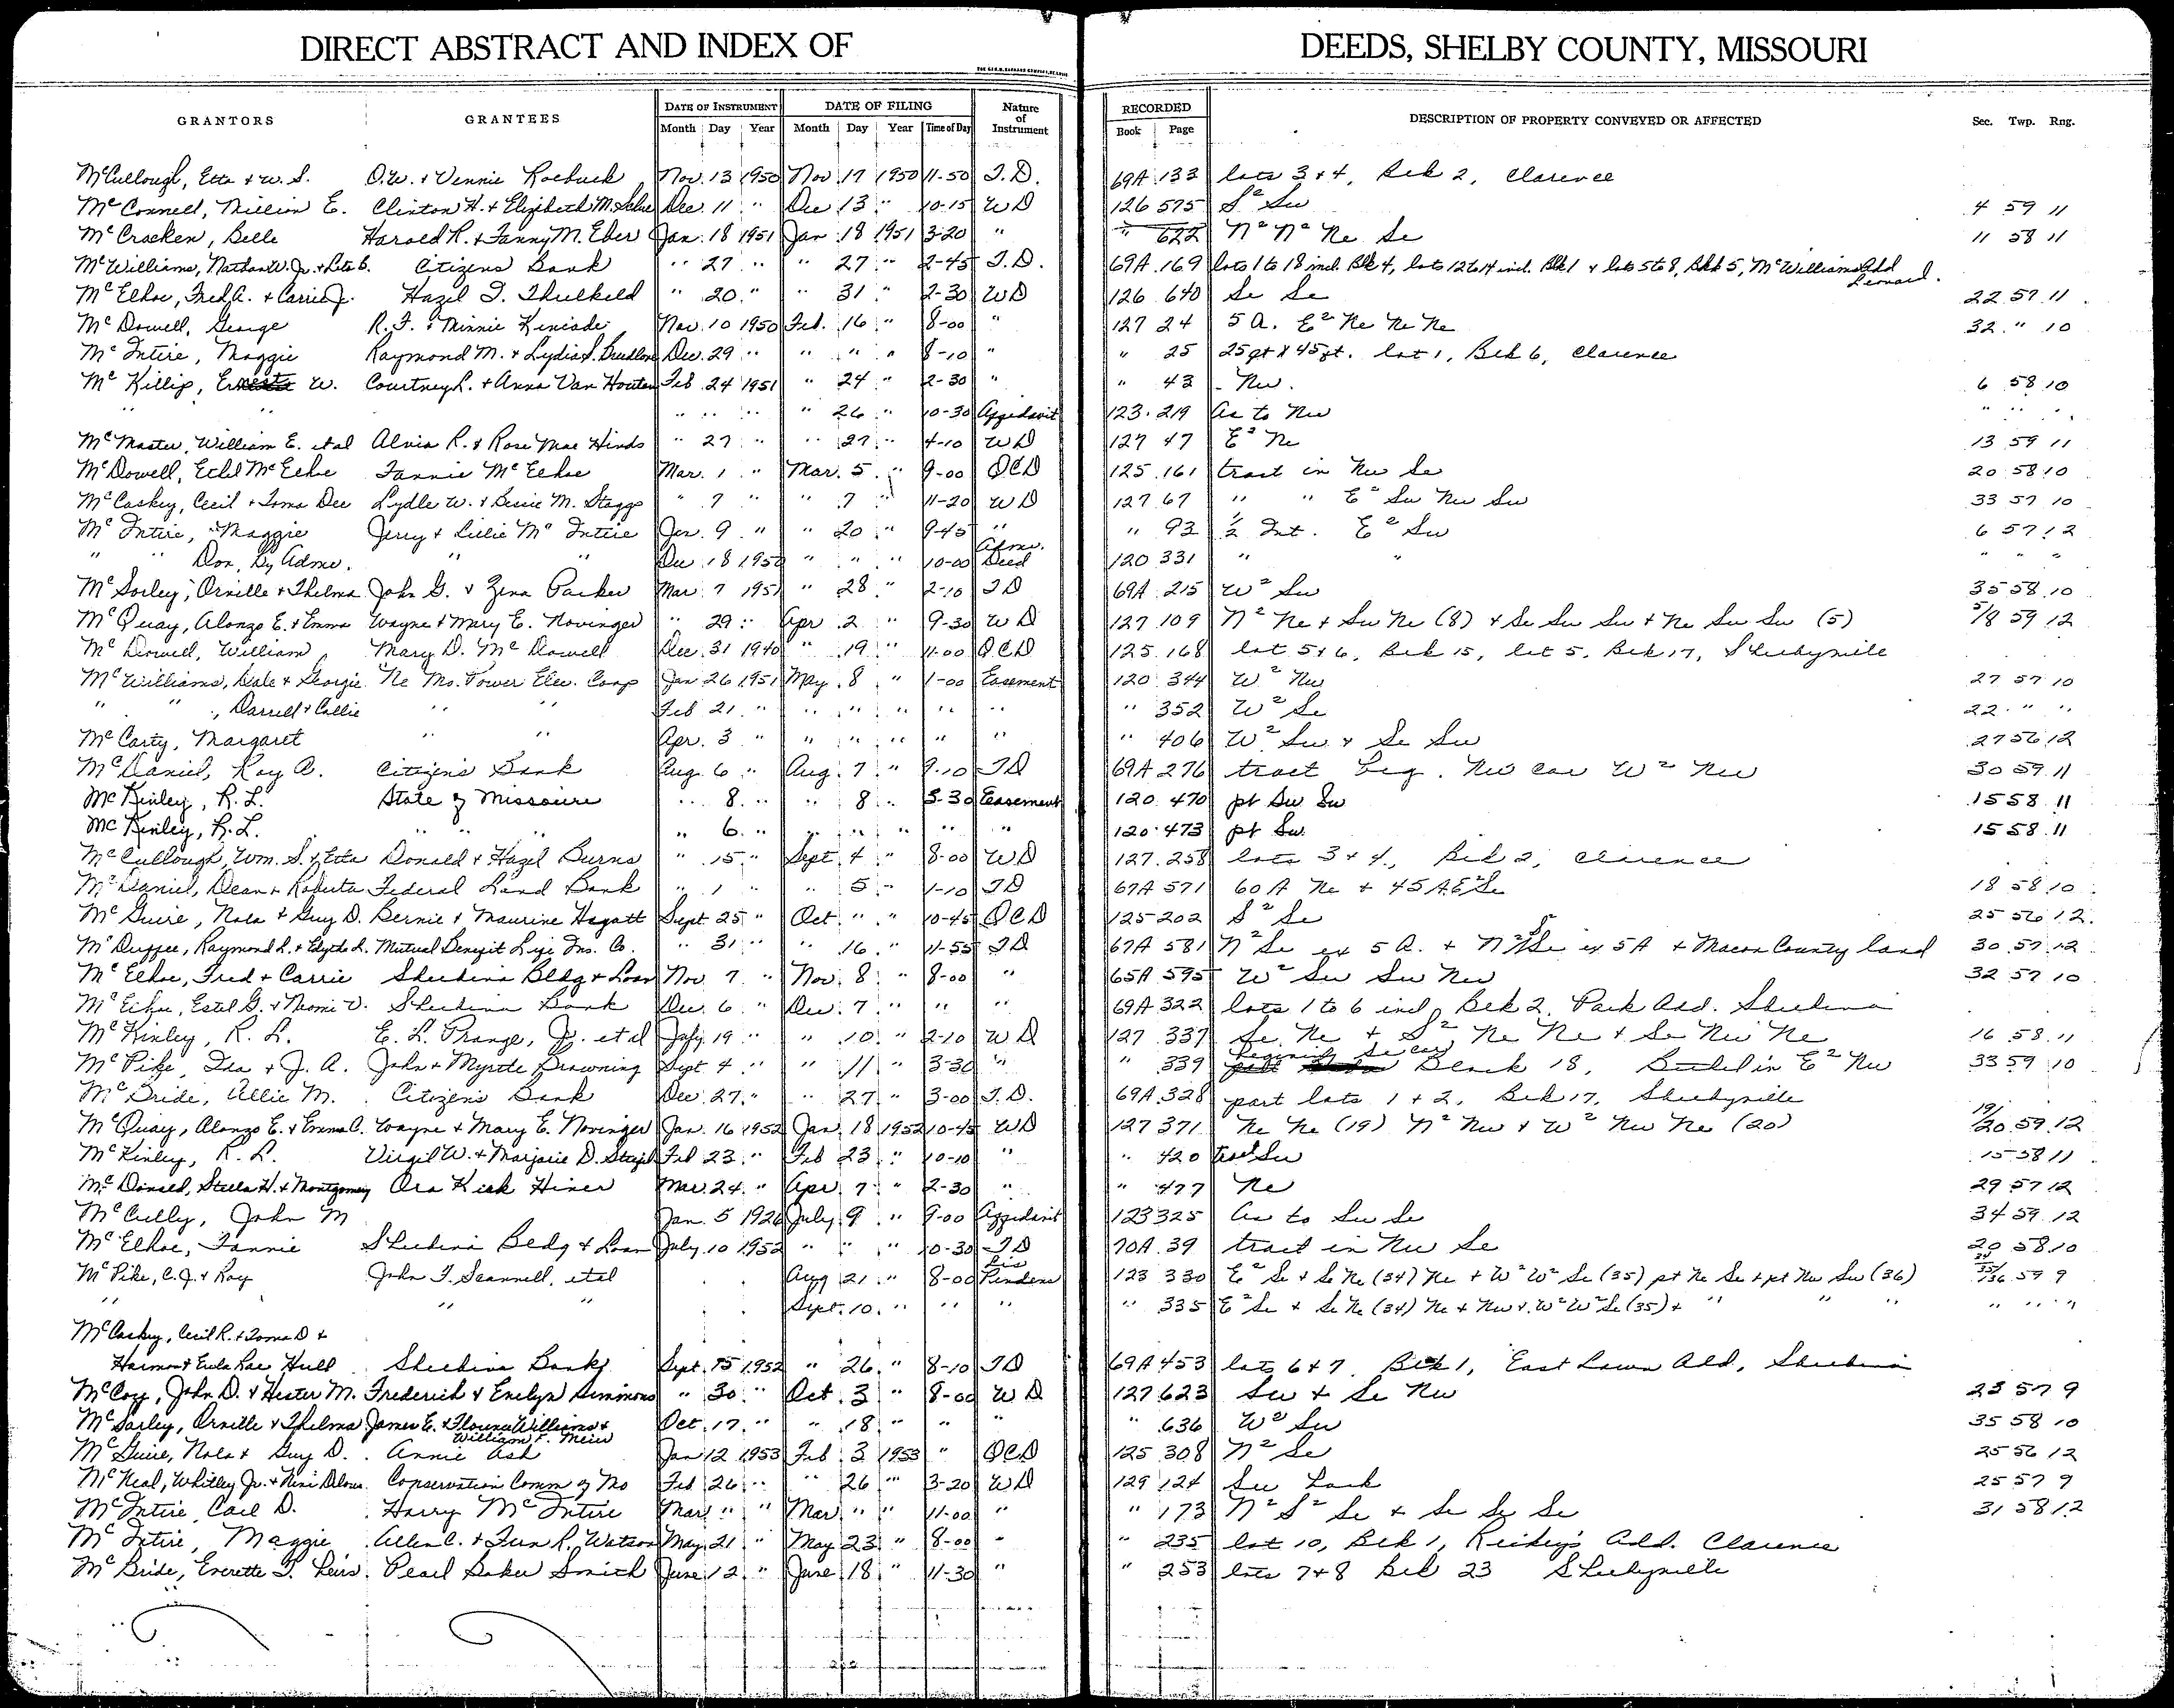 DIRECT ABSTRACT AND INDEX OF DEEDS, SHELBY COUNTY, MISSOURI
GRANTORS GRANTEES DATE OF INSTRUMENT DATE OF FILING Nature of Instrument RECORDED DESCRIPTION OF PROPERTY CONVEYED OR AFFECTED Sec. Twp. Rng.
Month Day Year Month Day Year Time of Day Book Page
McCullough, Etta + W. S. O.W. + Vennie Roebuck Nov. 13 1950 Nov. 17 1950 11-50 T.D. 69A 133 lots 3 + 4, Blk 2, Clarence
McConnell, Million E. Clinton H. + Elizabeth M. Dec. 11 " Dec 13 " 10-15 WD 126 575 S² Sw 4 59 11
McCracken, Belle Harold R. + Fanny M. Eber Jan. 18 1951 Jan 18 1951 3-20 " " 622 N² N² Ne Se 11 58 11
McWilliams, Nathan W. Jr. + Leta B. Citizens Bank " 27 " " 27 " 2-45 T.D. 69A 169 lots 1 to 18 incl. Blk 4, lots 12 to 14 incl. Blk 1 + lots 5 to 8, Blk 5, McWilliams Add Leonard.
McElhoe, Fred A. + Carrie J. Hazel T. Thulkeld " 20 " " 31 " 2-30 WD 126 640 Se Se 22 57 11
McDowell, George R. F. + Minnie Kincade Nov. 10 1950 Feb. 16 " 8-00 " 127 24 5 A. E² Ne Ne Ne 32 " 10
McIntire, Maggie Raymond M. + Lydia S. Dec. 29 " " " " 8-10 " " 25 25 ft x 45 ft. lot 1, Blk 6, Clarence
McKillip, Ernest W. Courtney L. + Anna Van Houten Feb 24 1951 " 24 " 2-30 " " 43 Nw. 6 58 10
" " " " " " 26 " 10-30 Affidavit 123 219 As to Nw " " "
McMaster, William E. et al Alvia R. + Rose Mae Hinds " 27 " " 27 " 4-10 WD 127 47 E² Ne 13 59 11
McDowell, Ethel McElhoe Fannie McElhoe Mar. 1 " Mar. 5 " 9-00 QCD 125 161 tract in Nw Se 20 58 10
McCaskey, Cecil + Toma Dee Lydle W. + Bessie M. Staggs " 7 " " 7 " 11-20 WD 127 67 " " E² Sw Nw Sw 33 57 10
McIntire, Maggie Jerry + Lillie McIntire Jan. 9 " " 20 " 9-45 " " 93 ½ Int. E² Sw 6 57 12
" " Don, By Adms. " " Dec 18 1950 " " " 10-00 Adms. Deed 120 331 " " " " "
McSorley, Orville + Thelma John G. + Zena Parker Mar. 7 1951 " 28 " 2-10 TD 69A 215 W² Sw 35 58 10
McQuay, Alonzo E. + Emma Wayne + Mary E. Novinger " 29 " Apr 2 " 9-30 WD 127 109 N² Ne + Sw Ne (8) + Se Sw Sw + Ne Sw Sw (5) 5/8 59 12
McDowell, William Mary D. McDowell Dec. 31 1940 " 19 " 11-00 QCD 125 168 lot 5 + 6, Blk 15, lot 5, Blk 17, Shelbyville
McWilliams, Dale + Georgie Ne Mo. Power Elec. Coop Jan 26 1951 May 8 " 1-00 Easement 120 344 W² Nw 27 57 10
" " , Darrell + Callie " " Feb 21 " " " " " " " 352 W² Se 22 " "
McCarty, Margaret " " Apr. 3 " " " " " " " 406 W² Sw + Se Sw 27 56 12
McDaniel, Roy A. Citizens Bank Aug. 6 " Aug. 7 " 9-10 TD 69A 276 tract beg. Nw cor W² Nw 30 59 11
McKinley, R. L. State of Missouri " 8 " " 8 " 3-30 Easement 120 470 pt Sw Sw 15 58 11
McKinley, R. L. " " " 6 " " " " " " 120 473 pt Sw. 15 58 11
McCullough, Wm. S. + Etta Donald + Hazel Burns " 15 " Sept 4 " 8-00 WD 127 258 lots 3 + 4, Blk 2, Clarence
McDaniel, Dean + Roberta Federal Land Bank " 1 " " 5 " 1-10 TD 67A 571 60 A Ne + 45 A. E² Se 18 58 10
McGuire, Nola + Guy D. Bernie + Maurine Hagatt Sept 25 " Oct " " 10-45 QCD 125 202 S² Se 25 56 12
McDuffee, Raymond L. + Edythe L. Mutual Benefit Life Ins. Co. " 31 " " 16 " 11-55 TD 67A 581 N² Se ex 5 A. + N² Se ex 5 A + Macon County land 30 57 12
McElhoe, Fred + Carrie Shelbina Bldg + Loan Nov 7 " Nov. 8 " 8-00 " 65A 595 W² Sw Sw Nw 32 57 10
Estel G. + Naomi V. Shelbina Bank Dec. 6 " Dec. 7 " " " 69A 322 lots 1 to 6 incl, Blk 2, Park Add. Shelbina
McKinley, R. L. E. L. Prange, Jr. et al July 19 " " 10 " 2-10 WD 127 337 Se Ne + S² Ne Ne + Se Nw Ne 16 58 11
McPike, Ida + J. A. John + Myrtle Browning Sept 4 " " 11 " 3-30 " " 339 Beginning Se cor Block 18, Bethel in E² Nw 33 59 10
McBride, Allie M. Citizens Bank Dec. 27 " " 27 " 3-00 T.D. 69A 328 part lots 1 + 2, Blk 17, Shelbyville
McQuay, Alonzo E. + Emma C. Wayne + Mary E. Novinger Jan. 16 1952 Jan. 18 1952 10-45 WD 127 371 Ne Ne (19) N² Nw + W² Nw Ne (20) 19/20 59 12
McKinley, R. L. Virgil W. + Marjorie D. Feb 23 " Feb 23 " 10-10 " " 420 tract Sw 15 58 11
McDonald, Stella H. + Montgomery Ora Kirk Hiner Mar. 24 " Apr 7 " 2-30 " " 477 Ne 29 57 12
McCully, John M Jan. 5 1926 July 9 " 9-00 Affidavit 123 325 As to Sw Se 34 59 12
McElhoe, Fannie Shelbina Bldg + Loan July 10 1952 " " " 10-30 TD 70A 39 tract in Nw Se 20 58 10
McPike, C. J. + Roy John T. Scannell, et al Aug 21 " 8-00 Lis Pendens 123 330 E² Se + Se Ne (34) Ne + W² W² Se (35) pt Ne Se + pt Nw Sw (36) 34/35/36 59 9
" " " Sept. 10 " " " " 335 E² Se + Se Ne (34) Ne + Nw + W² W² Se (35) + " " " " " "
McCaskey, Cecil R. + Toma D +
Harmon + Eula Rae Hull Shelbina Bank Sept. 15 1952 " 26 " 8-10 TD 69A 453 lots 6 + 7 Blk 1, East Lawn Add, Shelbina
McCoy, John D. + Hester M. Frederich + Evelyn Simmons " 30 " Oct 3 " 8-00 WD 127 623 Sw + Se Nw 23 57 9
McSorley, Orville + Thelma James E. + Florence Williams + William F. Meier Oct. 17 " " 18 " " " " 636 W² Sw 35 58 10
McGuire, Nola + Guy D. Annie Ash Jan 12 1953 Feb 3 1953 " QCD 125 308 N² Se 25 56 12
McNeal, Whitley Jr. + Conservation Comm of Mo Feb 26 " " 26 " 3-20 WD 129 124 Sw 25 57 9
McIntire, Carl D. Harry McIntire Mar " " Mar " " 11-00 " " 173 N² S² Se + Se Se Se 31 58 12
McIntire, Maggie Allen C. + Fern R. Watson May 21 " May 23 " 8-00 " " 235 lot 10, Blk 1, Add. Clarence
McBride, Everette T. Heirs Pearl Baker Smith June 12 " June 18 " 11-30 " " 253 lots 7 + 8 Blk 23 Shelbyville